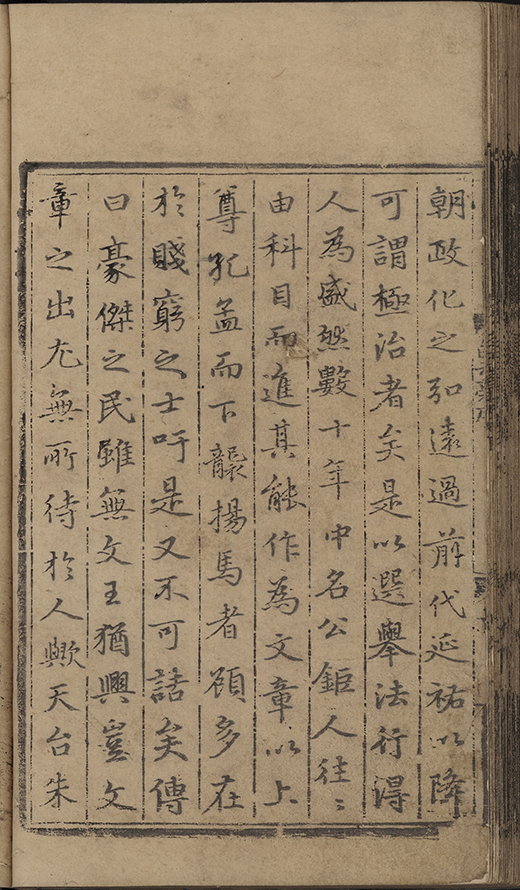 朝政化之弘遠過前代延祐以降
可謂極治者矣是以選舉法行得
人為盛然數十年中名公鉅人往〻
由科目而進其能作為文章以上
尊孔孟而下襲揚馬者顧多在
於賤窮之士吁是又不可詰矣傳
曰豪傑之民雖無文王猶興豈文
章之出尤無所待於人歟天台朱